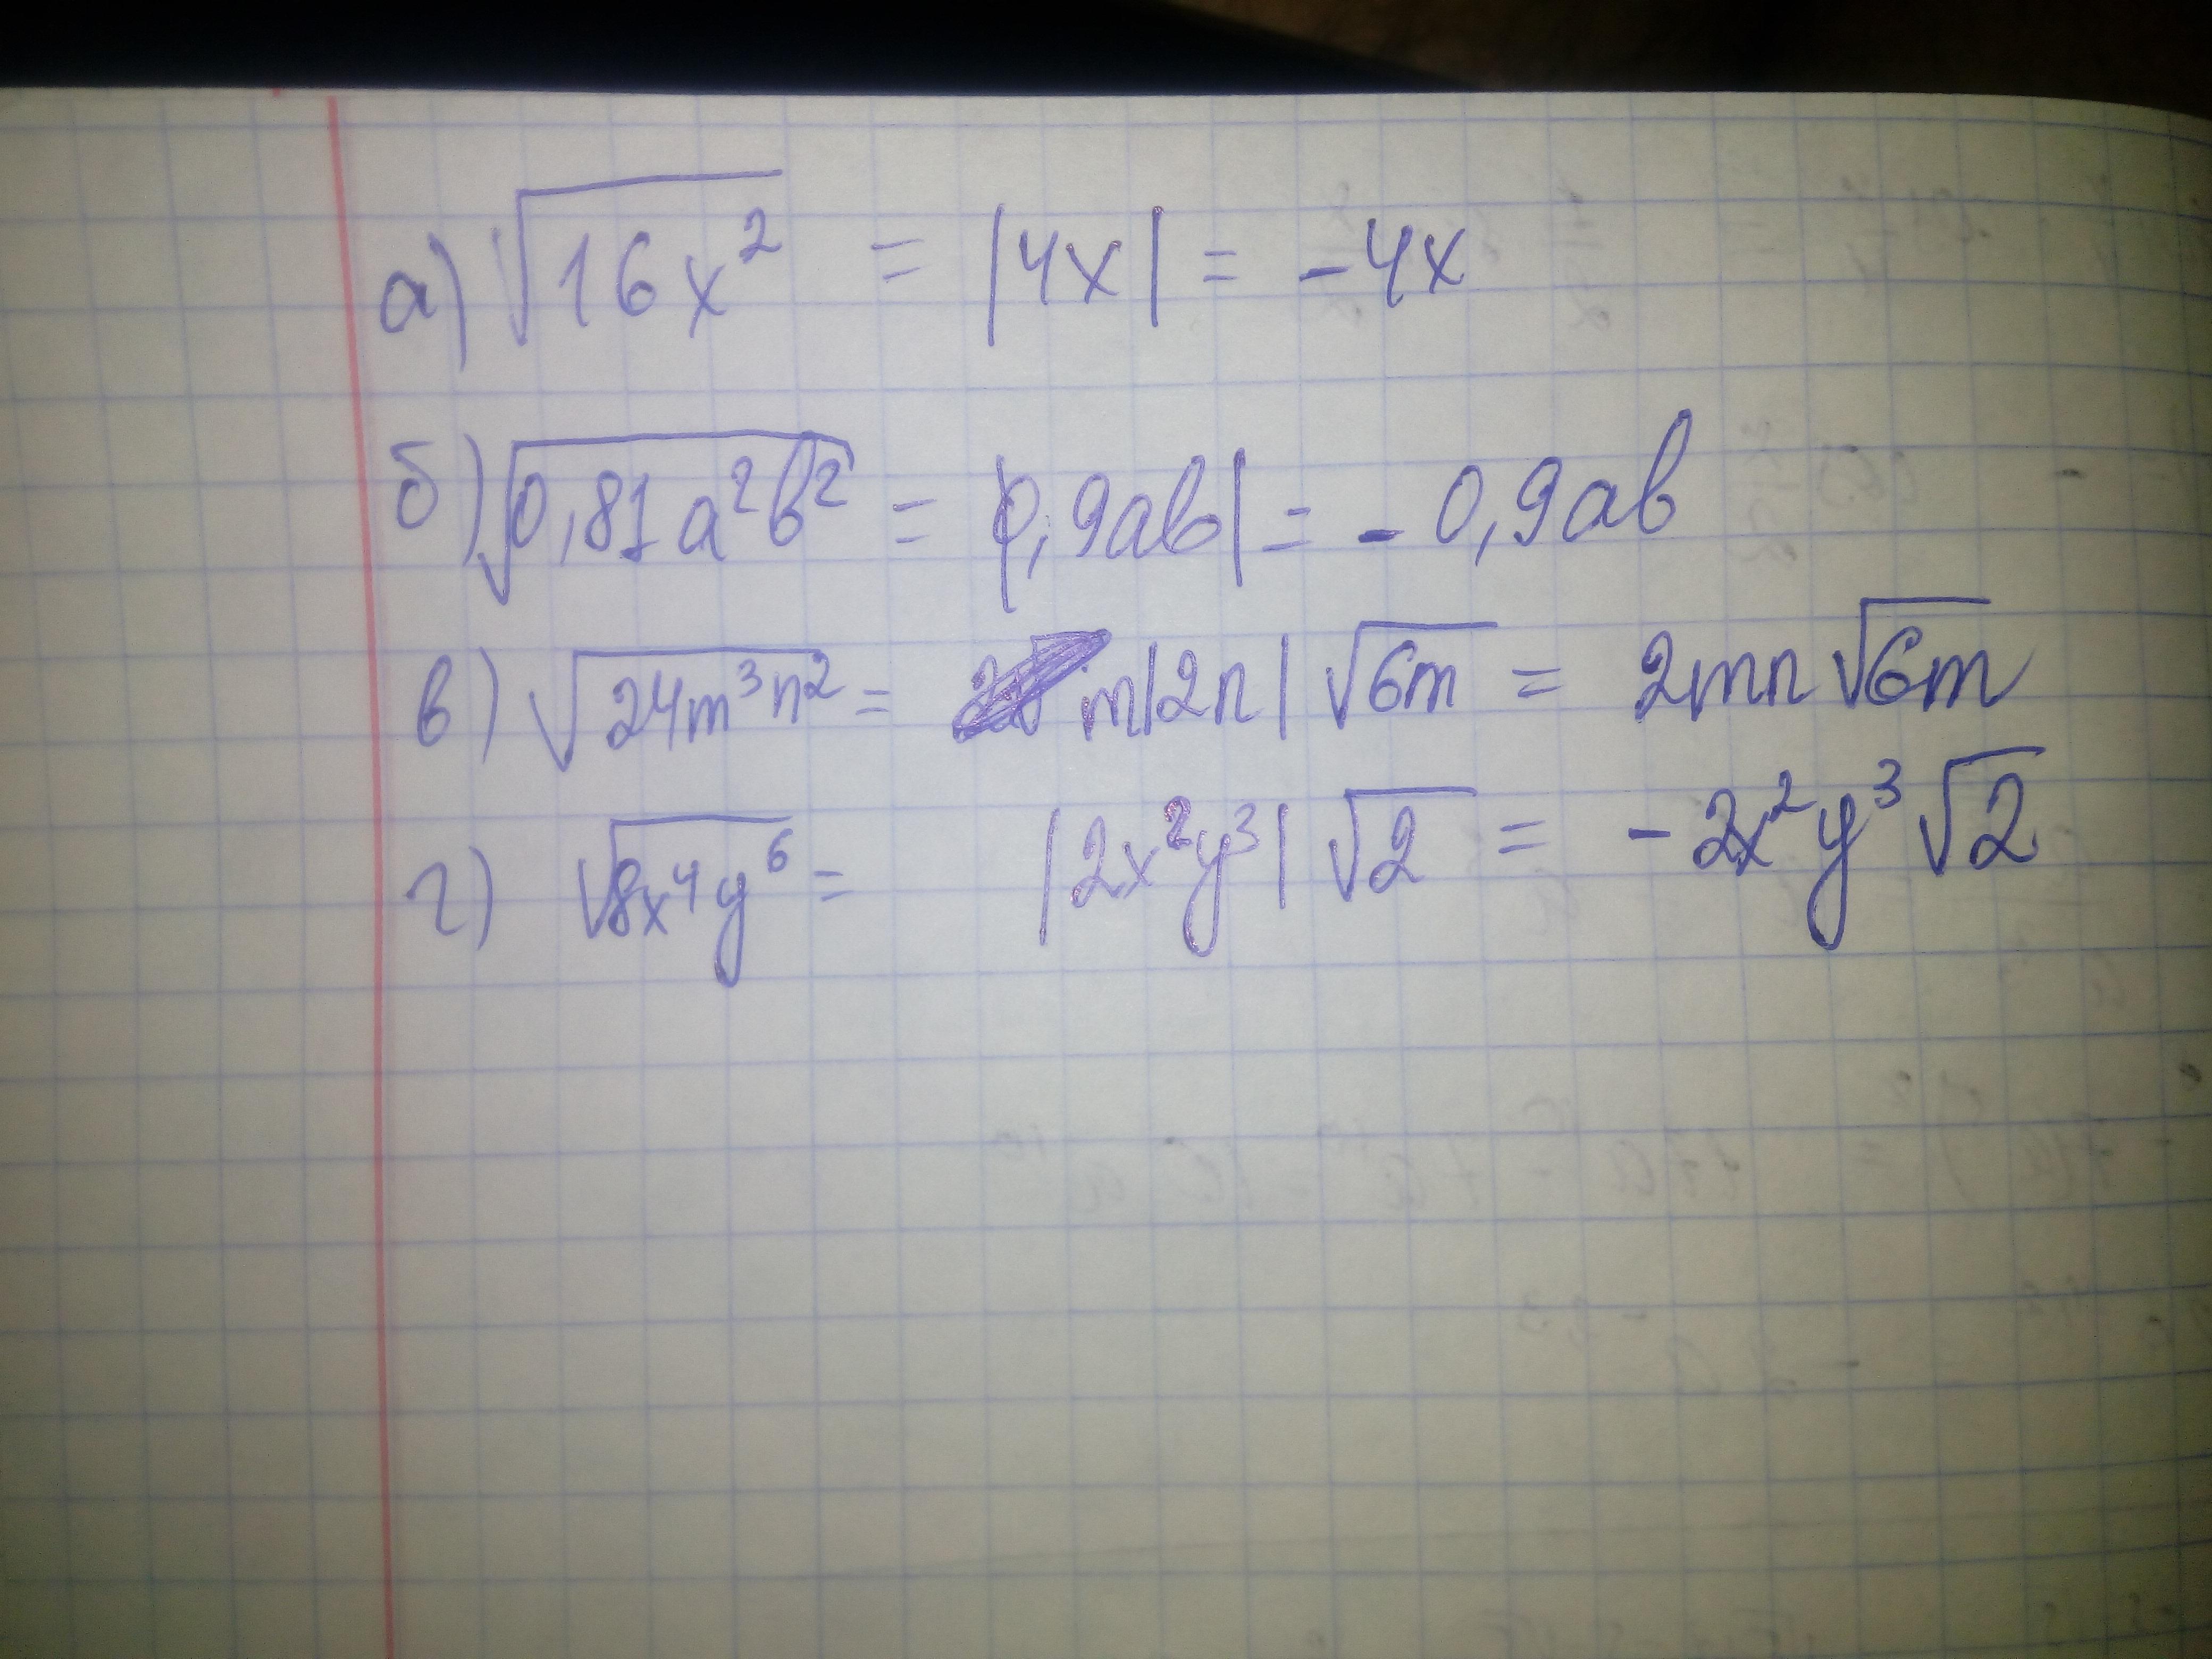 а) √16x² = |4x| = -4x
б) √0,81a²b² = |0,9ab| = - 0,9ab
в) √24m³n² = m|2n| √6m = 2mn√6m
г) √8x⁴y⁶ = |2x²y³| √2 = - 2x²y³√2